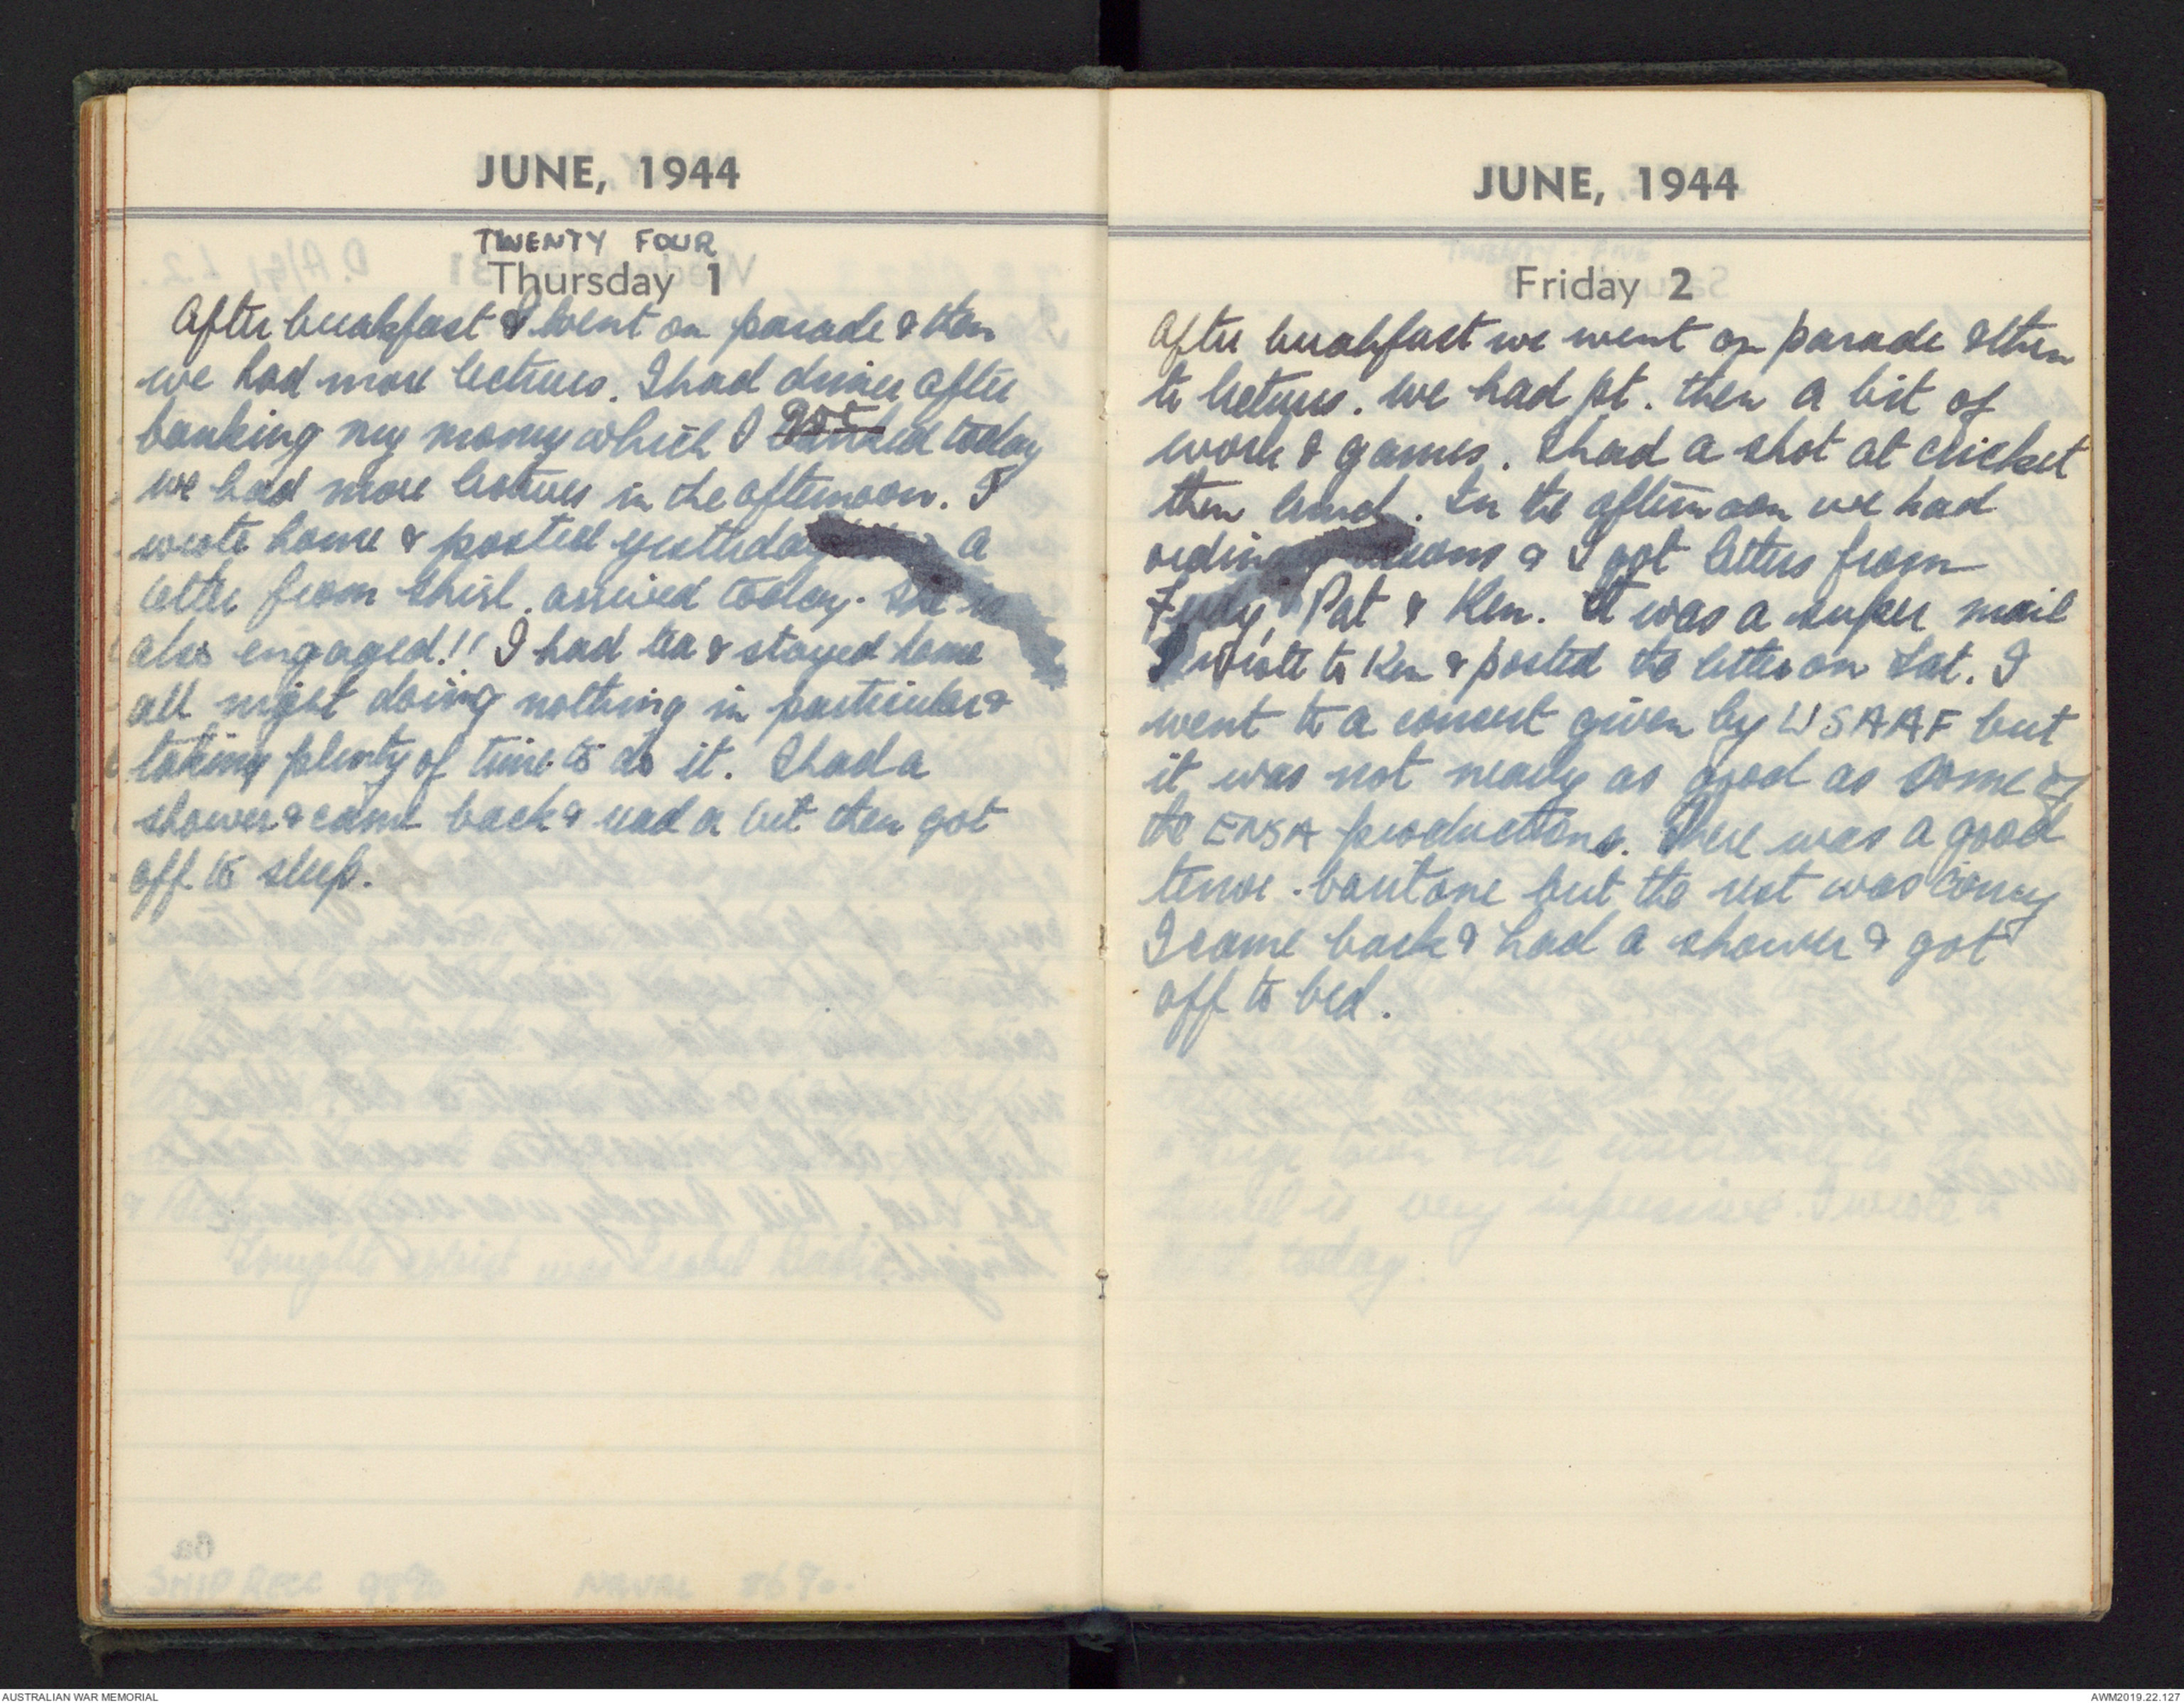 JUNE, 1944
TWENTY FOUR
Thursday 1
After breakfast I went on parade & then
we had more lectures. I had dinner after
banking my money which I got today
we had more lectures in the afternoon. I
wrote home & posted yesterday a
letter from Shirl. arrived today. She is
also engaged!! I had tea & stayed home
all night doing nothing in particular &
taking plenty of time to do it. I had a
shower & came back & read a bit then got
off to sleep.
JUNE, 1944
Friday 2
After breakfast we went on parade & then
to lectures. We had pt. then a bit of
work & games. I had a shot at cricket
then lunch. In the afternoon we had
& I got letters from
Pat & Ken. It was a super mail
I wrote to Ken & posted the letter on Sat. I
went to a concert given by USAAF but
it was not nearly as good as some of
the ENSA productions. There was a good
tenor - baritone but the rest was corny
I came back & had a shower & got
off to bed.
AUSTRALIAN WAR MEMORIAL
AWM2019.22.127